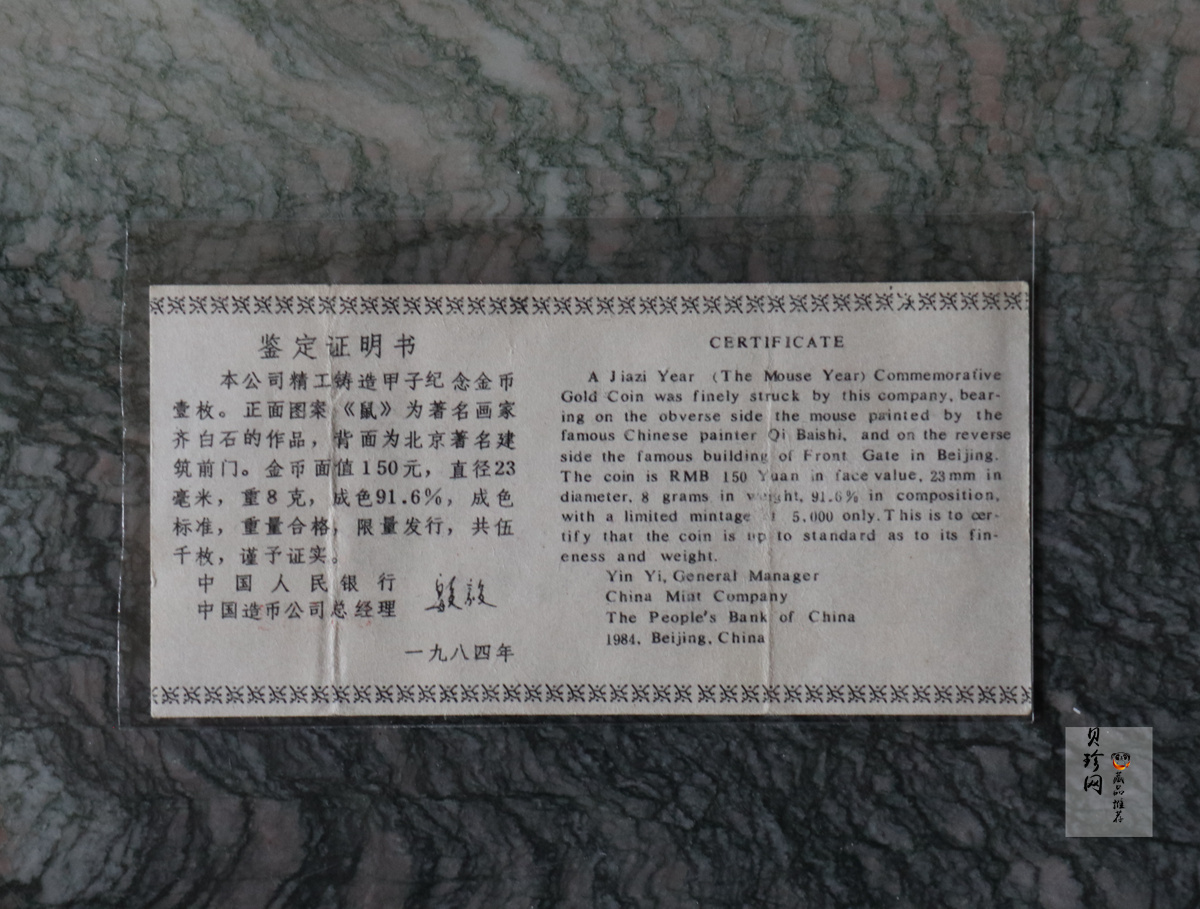 鉴定证明书
本公司精工铸造甲子纪念金币
壹枚。正面图案《鼠》为著名画家
齐白石的作品，背面为北京著名建
筑前门。金币面值150元，直径23
毫米，重8克，成色91.6%，成色
标准，重量合格，限量发行，共伍
千枚，谨予证实。
中国人民银行
中国造币公司总经理
一九八四年
CERTIFICATE
A Jiazi Year (The Mouse Year) Commemorative
Gold Coin was finely struck by this company, bear-
ing on the obverse side the mouse painted by the
famous Chinese painter Qi Baishi, and on the reverse
side the famous building of Front Gate in Beijing.
The coin is RMB 150 Yuan in face value, 23 mm in
diameter, 8 grams in weight, 91.6% in composition,
with a limited mintage 5,000 only. This is to cer-
tify that the coin is up to standard as to its fin-
eness and weight.
Yin Yi, General Manager
China Mint Company
The People's Bank of China
1984, Beijing, China
贝珍网
藏品推荐